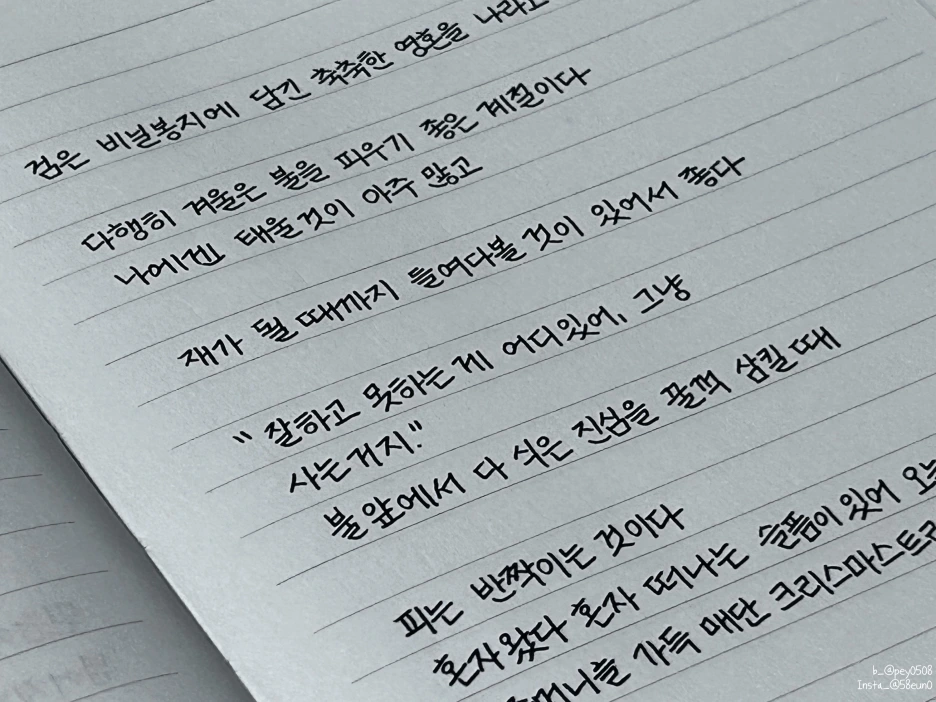 검은 비닐봉지에 담긴 축축한 영혼을 나라고
다행히 겨울은 불을 피우기 좋은 계절이다
나에겐 태울것이 아주 많고
재가 될 때까지 들여다볼 것이 있어서 좋다
"잘하고 못하는게 어디있어, 그냥
사는거지."
불앞에서 다 식은 진심을 꿀꺽 삼킬 때
피는 반짝이는 것이다
혼자왔다 혼자 떠나는 슬픔이 있어
가득 매단 크리스마스트리
b_@pey0508
Insta_@58eun0